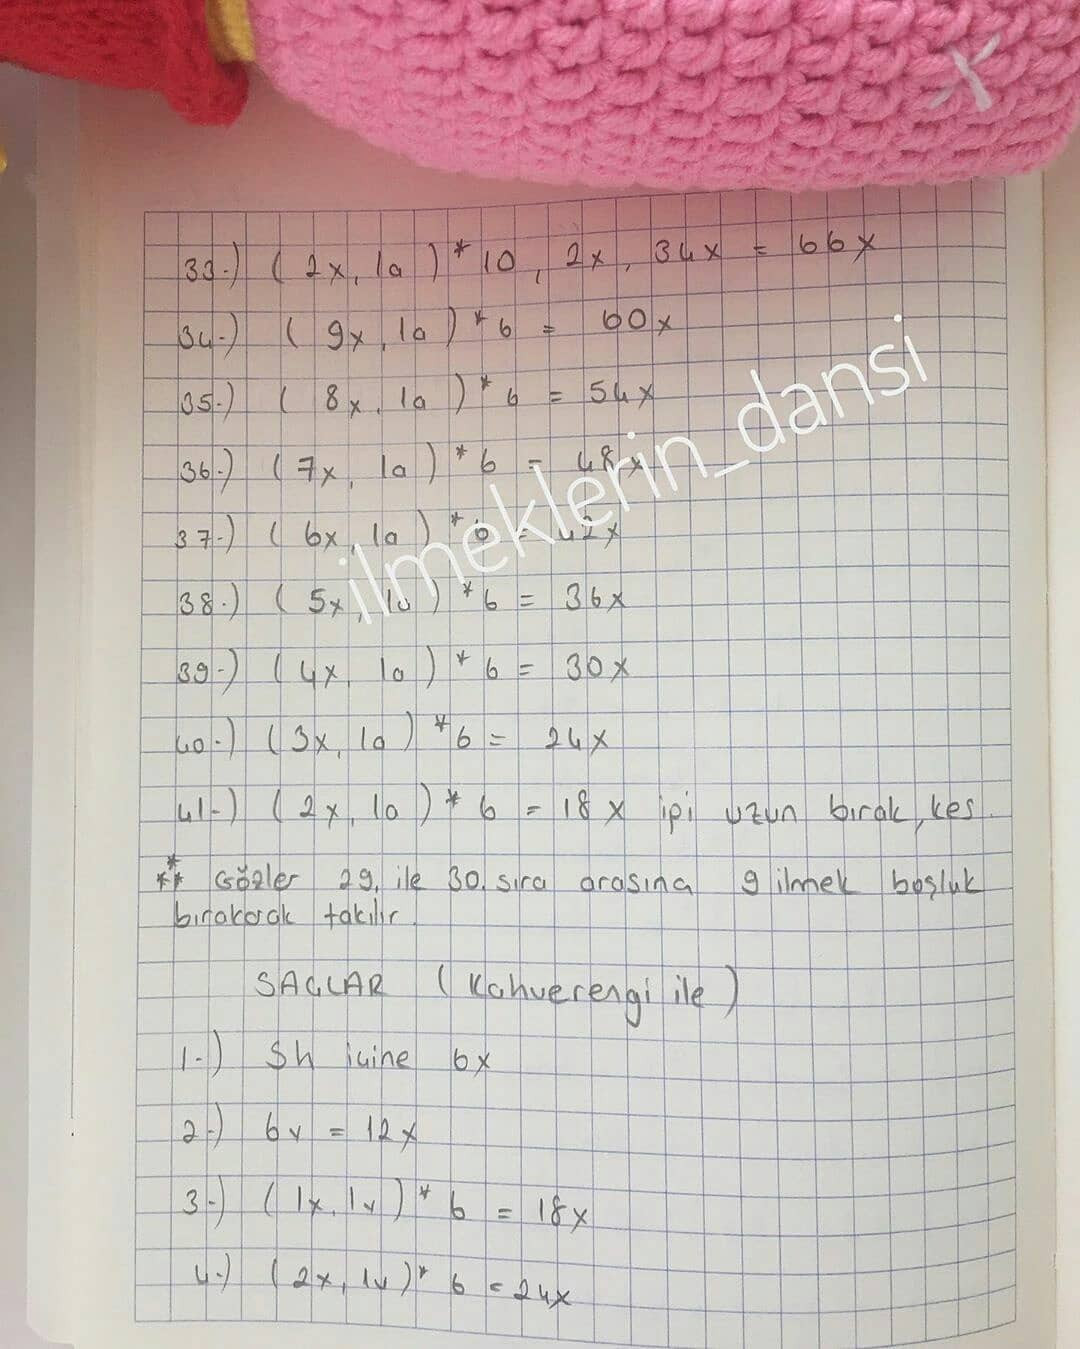 33-) ( 2x, 1a ) * 10 , 2x , 34x = 66x
34-) ( 9x, 1a ) * 6 = 60x
35-) ( 8x, 1a ) * 6 = 54x
36-) ( 7x, 1a ) * 6 = 48x
37-) ( 6x, 1a ) * 6 = 42x
38-) ( 5x, 1a ) * 6 = 36x
39-) ( 4x, 1a ) * 6 = 30x
40-) ( 3x, 1a ) * 6 = 24x
41-) ( 2x, 1a ) * 6 = 18x ipi uzun bırak, kes.
*** Gözler 29. ile 30. sıra arasına 9 ilmek boşluk
bırakarak takılır.
SAÇLAR ( Kahverengi ile )
1-) Sh içine 6x
2-) 6v = 12x
3-) ( 1x, 1v ) * 6 = 18x
4-) ( 2x, 1v ) * 6 = 24x
ilmeklerin_dansi